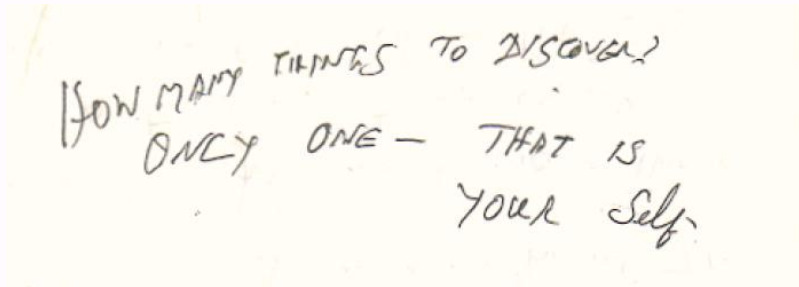 HOW MANY THINGS TO DISCOVER?
ONLY ONE — THAT IS
YOUR Self.